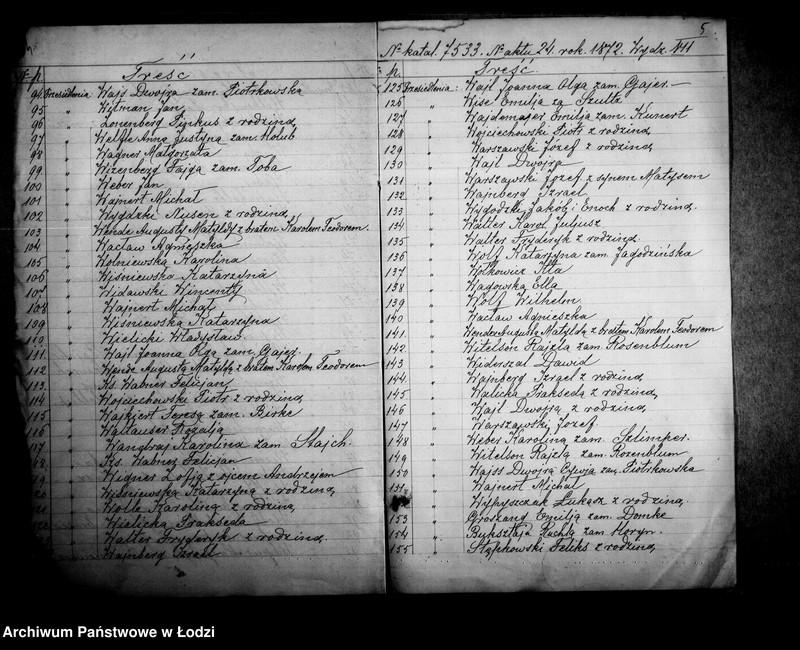 5
№ katal. 7533. № aktu 24. rok. 1872. Wydz. VII
№ p. Treść
94 Przesiedlenia Wajs Dwojra zam. Piotrkowska
95 " Witman Jan
96 " Lonenberg Pinkus z rodziną
97 " Welfle Anna Justyna zam. Holub
98 " Wagner Małgorzata
99 " Wizenberg Fajga zam. Toba
100 " Weber Jan
101 " Wajnert Michał
102 " Wygdzki Nusen z rodziną
103 " Wende Augusty Matyldy z bratem Karolem Teodorem.
104 " Wacław Agnieszka
105 " Wolniewska Karolina
106 " Wiśniewska Katarzyna
107 " Widawski Wincenty
108 " Wajnert Michał
109 " Wiśniewska Katarzyna
110 " Wielicki Władysław
111 " Wajl Joanna Olga zam. Gajes.
112 " Wende Augusty Matyldę z bratem Karolem Teodorem
113 " Ks. Wabner Felicjan
114 " Wojciechowski Piotr z rodziną
115 " Wajkiert Teresa zam. Birke
116 " Waltauser Rozalja
117 " Wangtraj Karolina zam. Stajch.
118 " Ks. Wabnez Felicjan
119 " Wigner Zofją z ojcem Andrzejem
120 " Wiśniewska Katarzyną z rodziną
121 " Wolle Karoliną z rodziną
122 " Wielicką Praksedą
" Walter Fryderyk z rodziną.
" Wajnberg Izrael
p. Treść.
125 Przesiedlenia: Wajl Joanna Olga zam. Gajes.
126 " Wise Emilia za Szultz
127 " Wajdemajer Emilja zam. Kunert
128 " Wojciechowski Piotr z rodziną
129 " Warszawski Józef z rodziną
130 " Wajl Dwojra
131 " Warszawski Jozef z synem Matysem
132 " Wajnberg Izrael
133 " Wygodzki Jakób i Enoch z rodziną.
134 " Walter Karol Juljusz
135 " Walter Fryderyk z rodziną.
136 " Wolf Katarzyna zam. Jagodzińska
137 " Wolkowicz Ita
138 " Wagowska Ella
139 " Wolf Wilhelm
140 " Wacław Agnieszka
141 " Wende Augustą Matyldą z bratem Karolem Teodorem
142 " Witelson Rajzla zam. Rosenblum
143 " Widerszal Dawid
144 " Wajnberg Izrael z rodziną
145 " Walicka Praksedą z rodziną,
146 " Wajl Dwojrą z rodziną
147 " Warszawski Jozef.
148 " Weber Karoliną zam. Szlimper.
149 " Witelson Rajzlą zam. Rozenblum
150 " Wajss Dwojrą Cywją zam. Piotrkowska
151 " Wajnert Michał
" Wypyszczek Łukasz z rodziną.
153 " Groszang Emilją zam. Domke
154 " Bukształa Ruchla zam. Horyn.
155 " Stępkowski Feliks z rodziną
Archiwum Państwowe w Łodzi